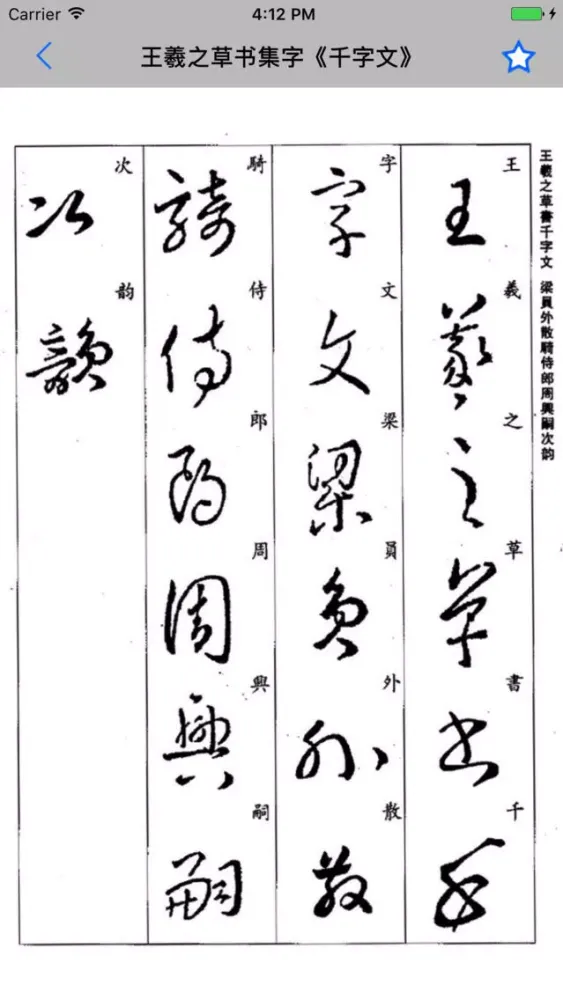 Carrier 4:12 PM
王羲之草书集字《千字文》
王羲之草書千字文 梁員外散騎侍郎周興嗣次韵
王羲之草書千
字文梁員外散
騎侍郎周興嗣
次韵